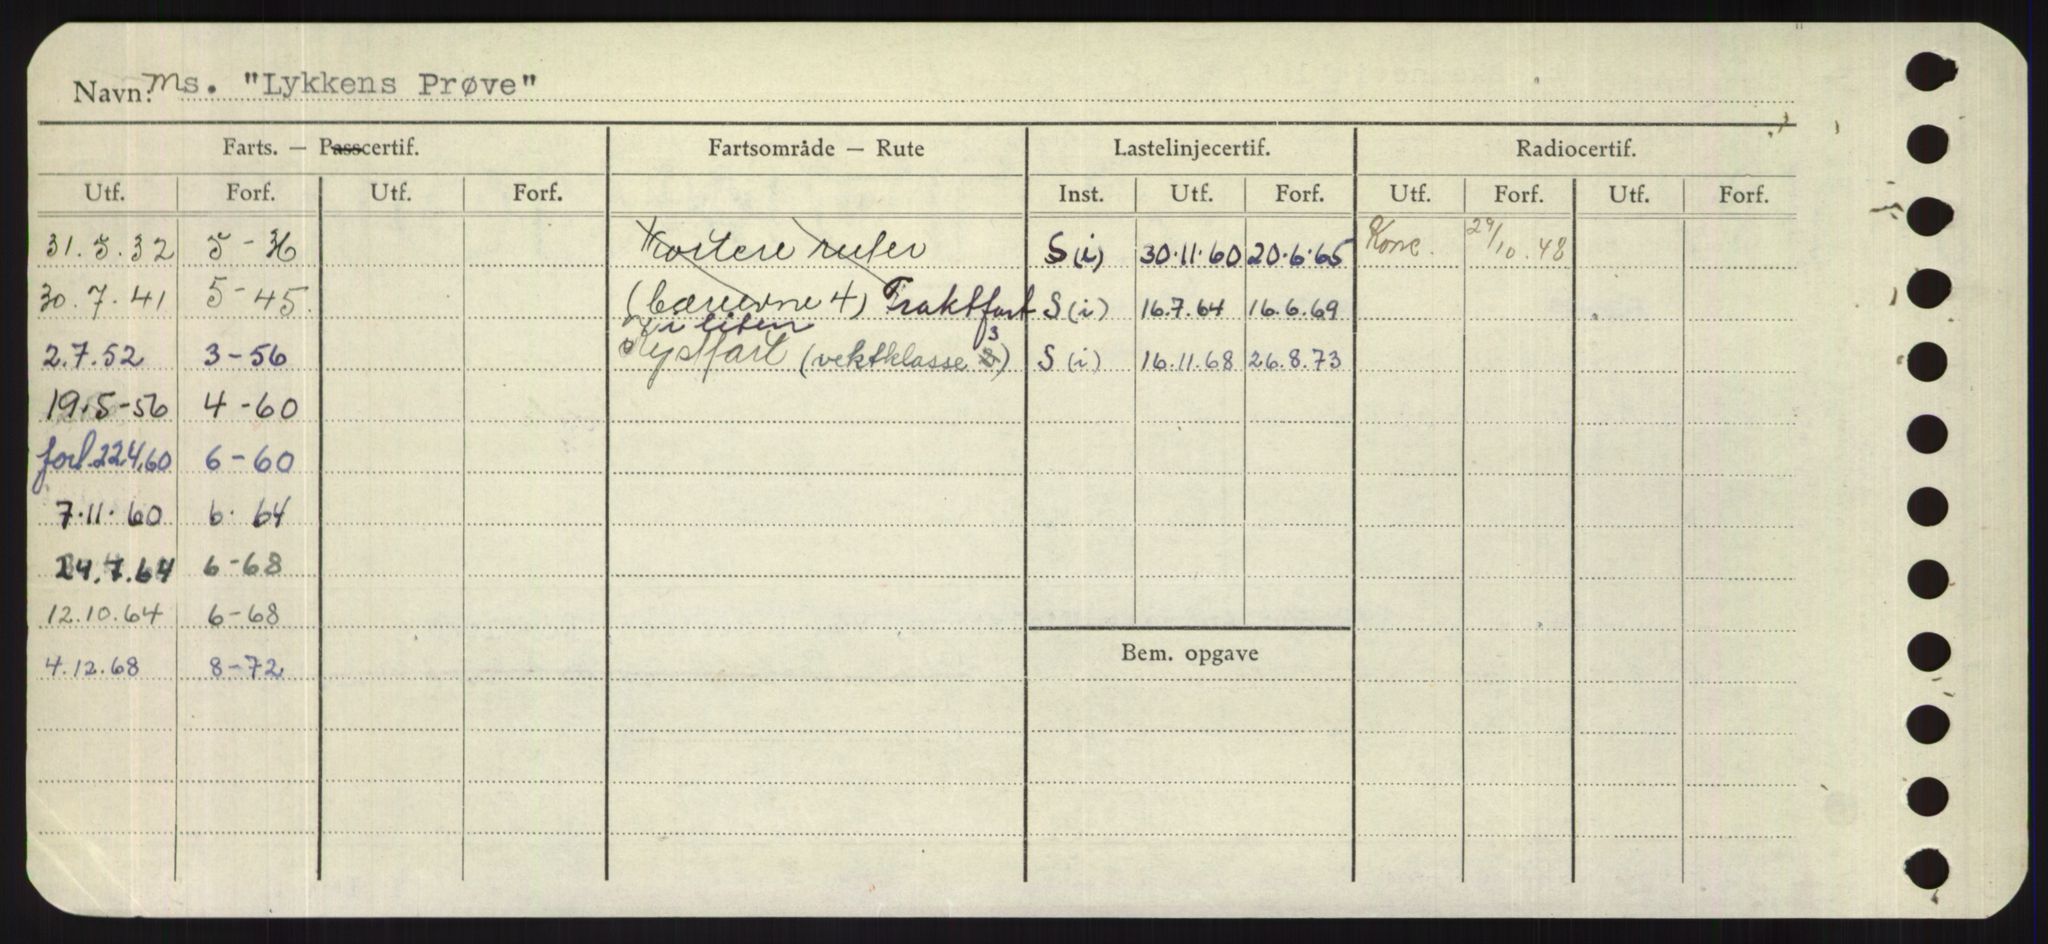 Navn: Ms. "Lykkens Prøve"
Farts. — Passcertif. Fartsområde — Rute Lastelinjecertif. Radiocertif.
Utf. Forf. Utf. Forf. Inst. Utf. Forf. Utf. Forf. Utf. Forf.
31.5.32 5-36 Kortere ruter S(i) 30.11.60 20.6.65 Konc. 29/10.48
30.7.41 5-45. (bæreevne 4) Fraktfart S(i) 16.7.64 16.6.69
i liten
2.7.52 3-56 Kystfart (vektklasse 3) S(i) 16.11.68 26.8.73
19.5-56 4-60
forl. 22.4.60 6-60
7.11.60 6. 64
24.7.64 6-68
12.10.64 6-68
Bem. opgave
4.12.68 8-72